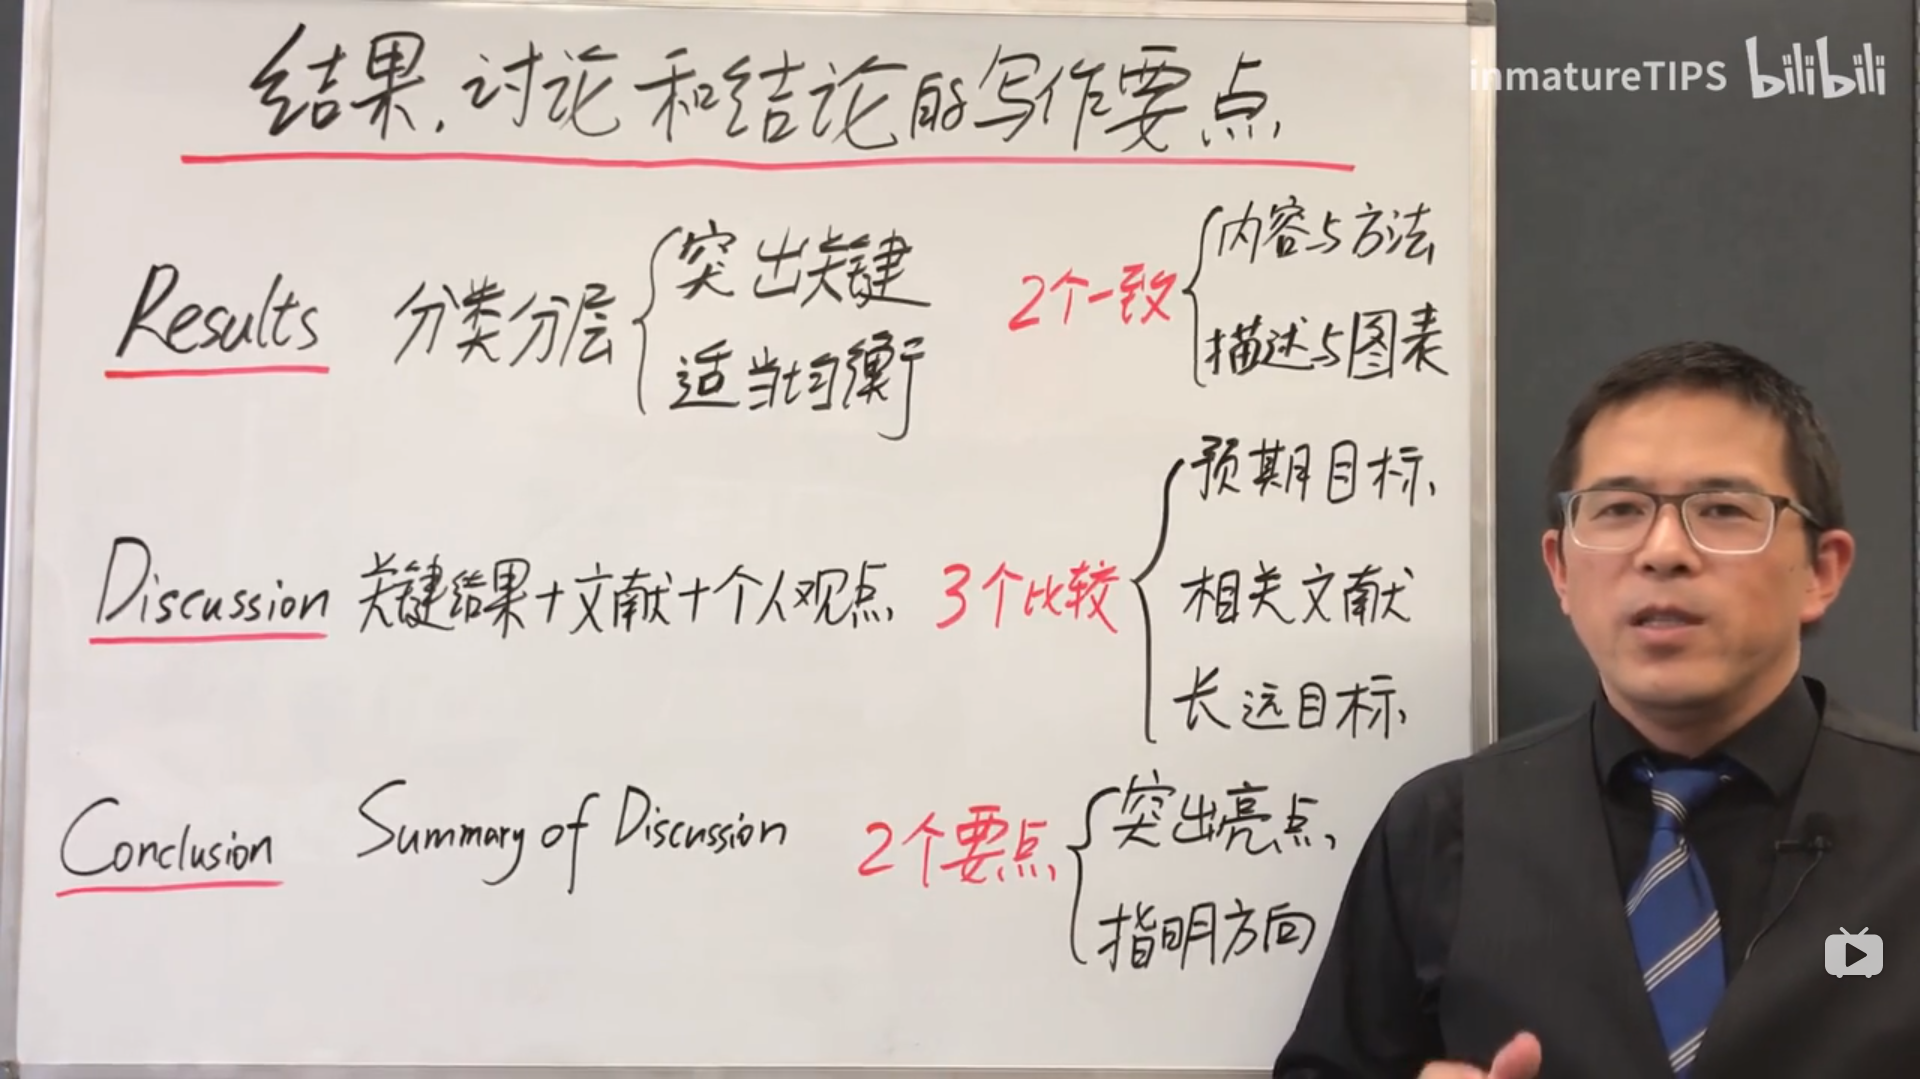 inmatureTIPS bilibili
结果.讨论和结论的写作要点
Results 分类分层 突出关键 适当均衡 2个一致 内容与方法 描述与图表
Discussion 关键结果+文献+个人观点 3个比较 预期目标 相关文献 长远目标
Conclusion Summary of Discussion 2个要点 突出亮点 指明方向